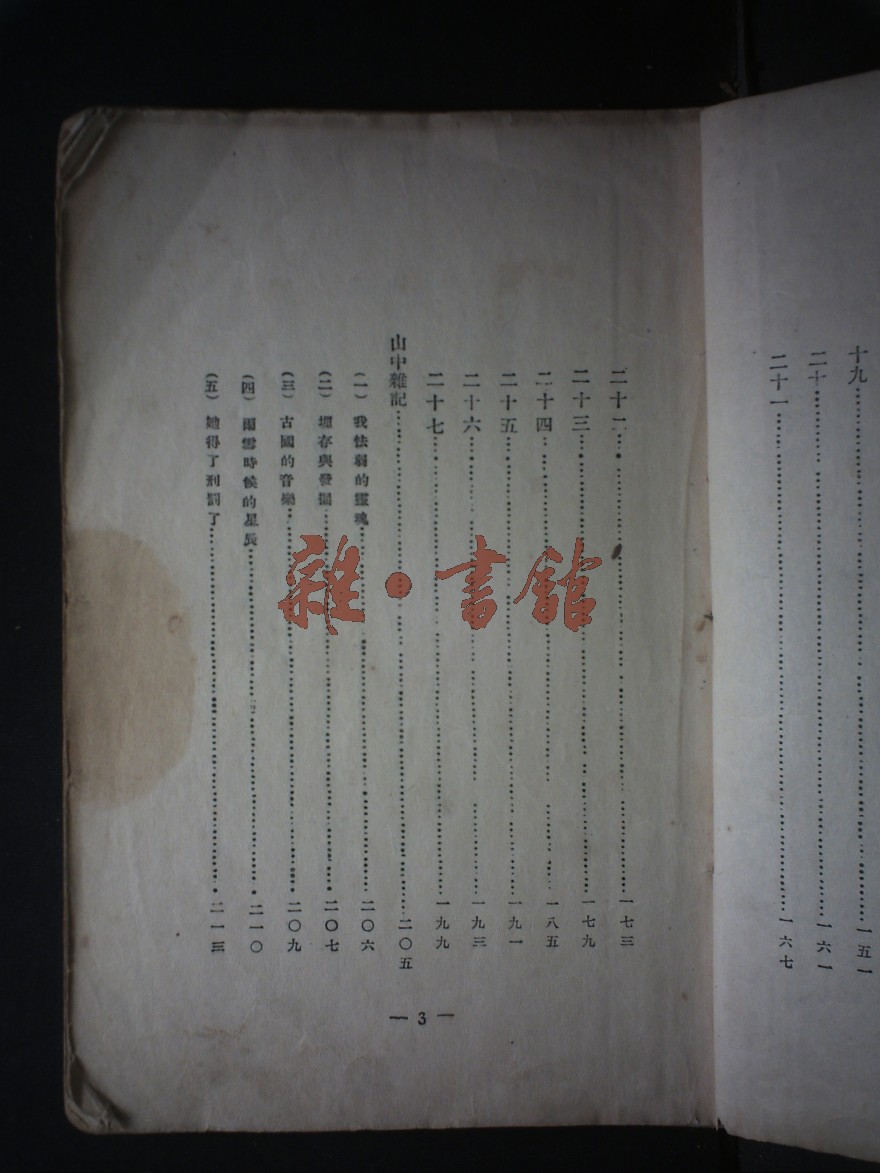 十九……一五一
二十……一六一
二十一……一六七
二十二……一七三
二十三……一七九
二十四……一八五
二十五……一九一
二十六……一九三
二十七……一九九
山中雜記……二〇五
(一) 我怯弱的靈魂……二〇六
(二) 埋存與發掘……二〇七
(三) 古國的音樂……二〇九
(四) 雨雪時候的星辰……二一〇
(五) 她得了刑罰了……二一三
— 3 —
雜·書館